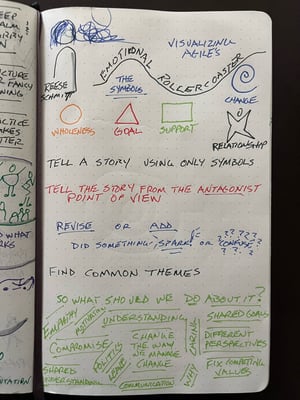 VISUALIZING
AGILES
EMOTIONAL ROLLERCOASTER
REESE
SCHMITT
THE
SYMBOLS
CHANGE
WHOLENESS
GOAL
SUPPORT
RELATIONSHIP
TELL A STORY USING ONLY SYMBOLS
TELL THE STORY FROM THE ANTAGONIST
POINT OF VIEW
REVISE OR ADD
DID SOMETHING SPARK! OR CONFUSE?
FIND COMMON THEMES
SO WHAT SHOULD WE DO ABOUT IT?
EMPATHY
MOTIVATION
UNDERSTANDING
COMPROMISE
POLITICS
LEAVE
CHANGE
THE WAY
WE MANAGE
CHANGE
SHARED
UNDERSTANDING
COMMUNICATION
CARING
WHY
SHARED GOALS
DIFFERENT
PERSPECTIVES
FIX COMPETING
VALUES